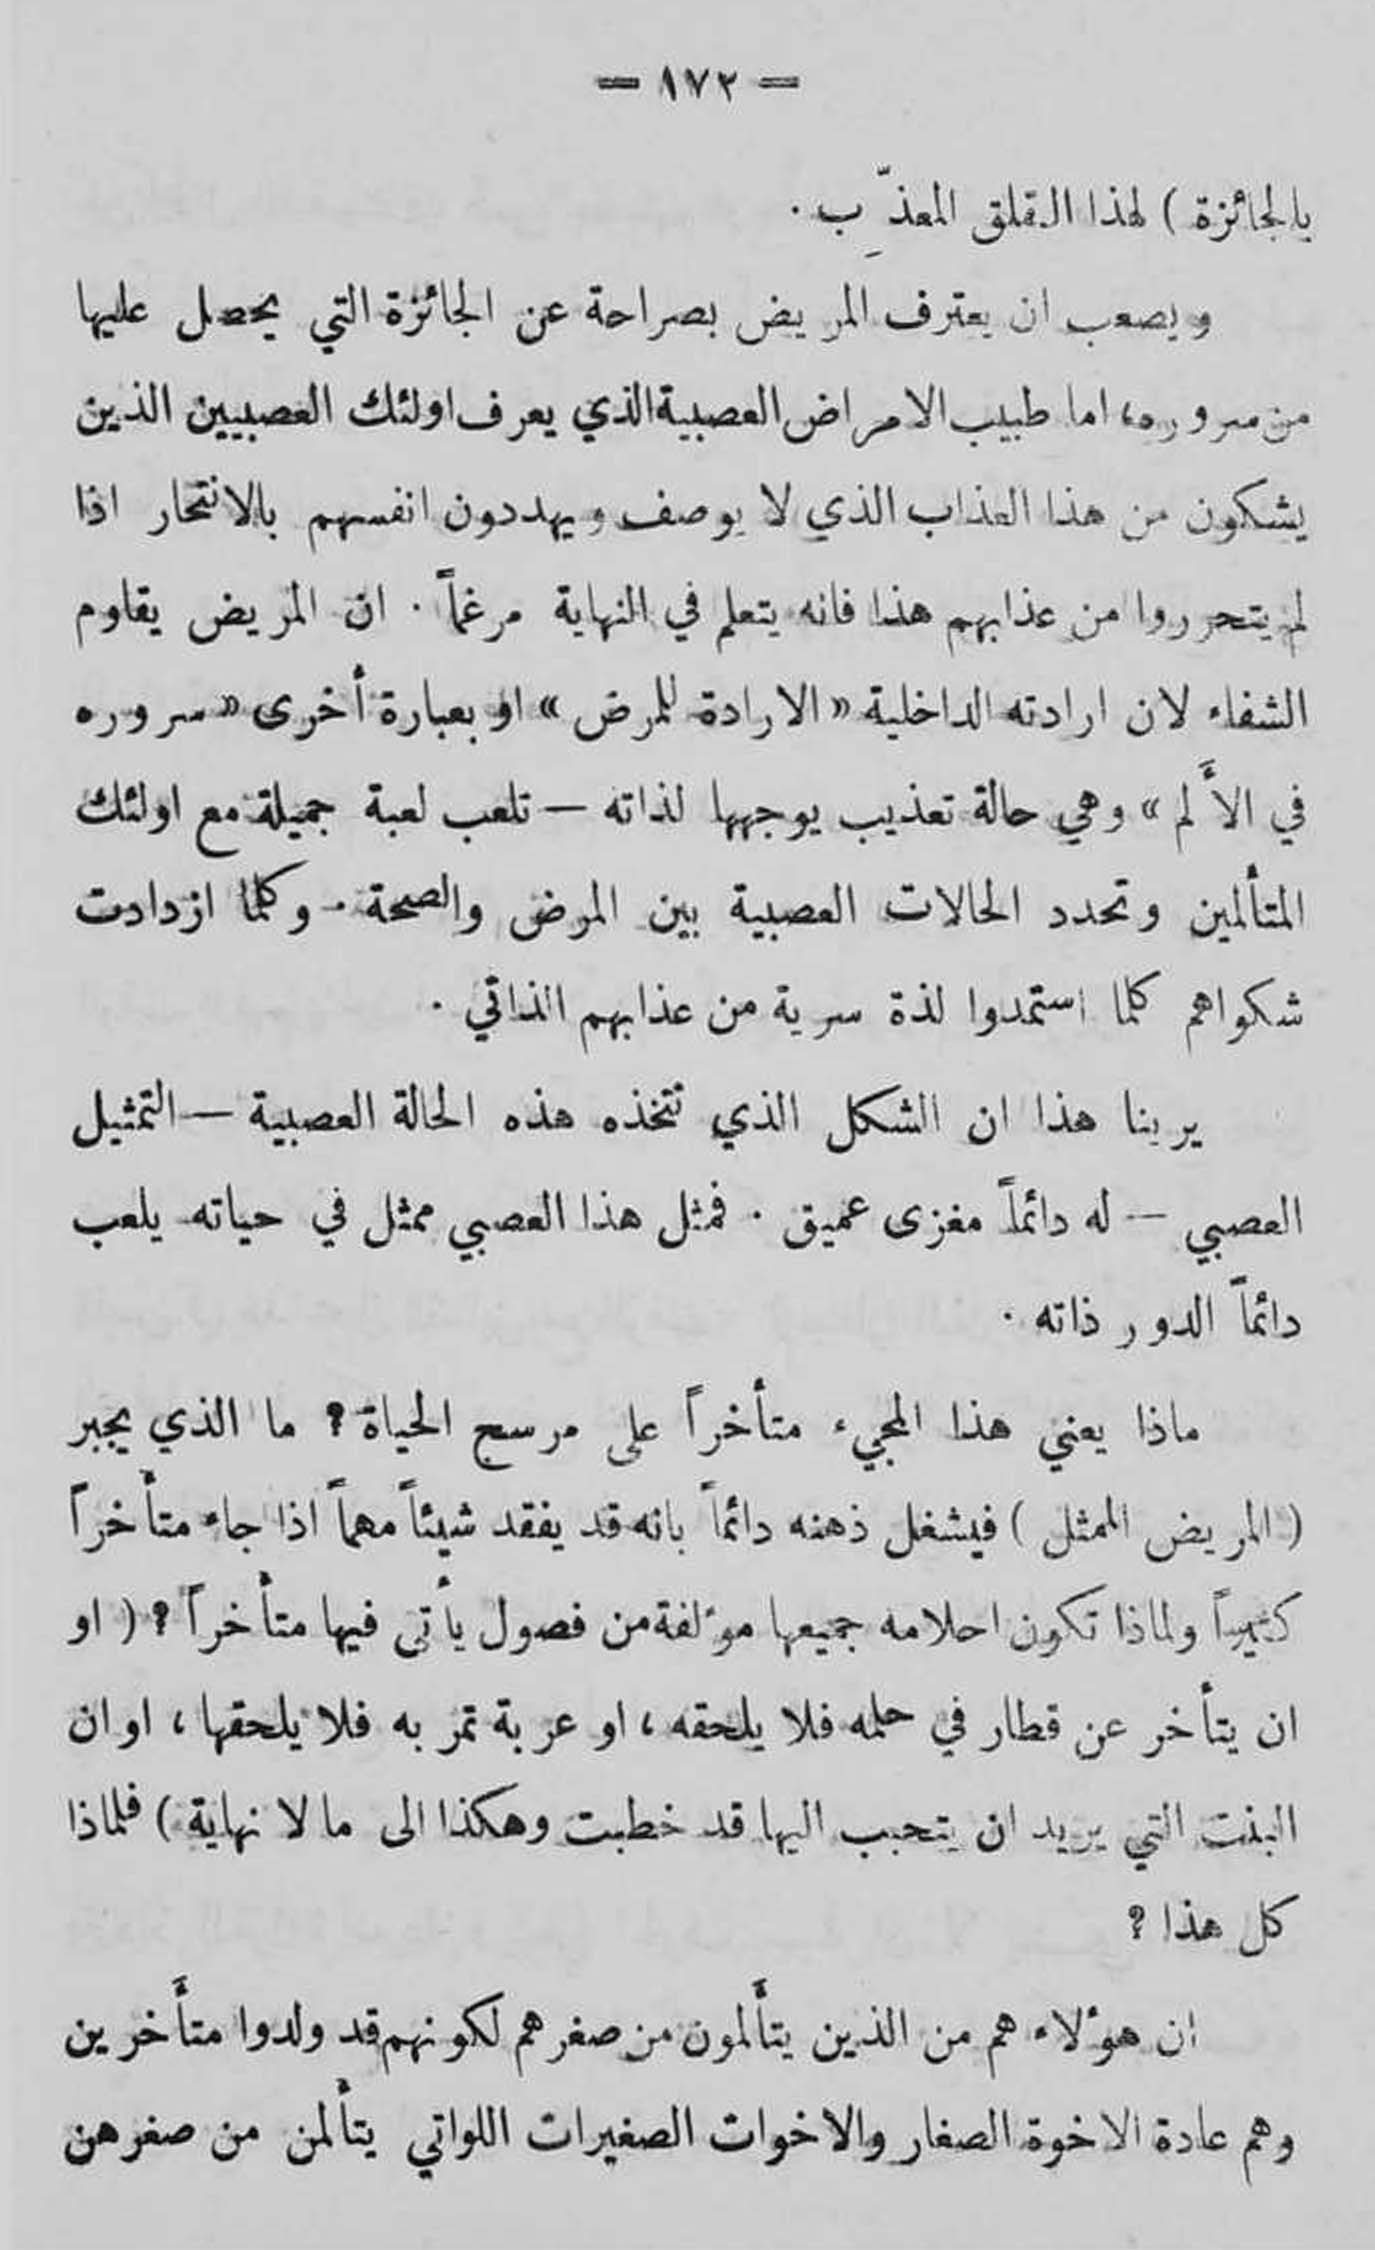 = ١٧٢ =
بالجائزة ) لهذا القلق المعذِّب .
ويصعب ان يعترف المريض بصراحة عن الجائزة التي يحصل عليها
من سروره، اما طبيب الامراض العصبية الذي يعرف اولئك العصبيين الذين
يشكون من هذا العذاب الذي لا يوصف ويهددون انفسهم بالانتحار اذا
لم يتحرروا من عذابهم هذا فانه يتعلم في النهاية مرغماً . ان المريض يقاوم
الشفاء لان ارادته الداخلية « الارادة للمرض » او بعبارة أخرى « سروره
في الأَلم » وهي حالة تعذيب يوجهها لذاته — تلعب لعبة جميلة مع اولئك
المتألمين وتحدد الحالات العصبية بين المرض والصحة . وكلما ازدادت
شكواهم كلما استمدوا لذة سرية من عذابهم الذاتي .
يرينا هذا ان الشكل الذي تتخذه هذه الحالة العصبية — التمثيل
العصبي — له دائماً مغزى عميق . فمثل هذا العصبي ممثل في حياته يلعب
دائماً الدور ذاته .
ماذا يعني هذا المجيء متأخراً على مرسح الحياة ؟ ما الذي يجبر
( المريض الممثل ) فيشغل ذهنه دائماً بانه قد يفقد شيئاً مهماً اذا جاء متأخراً
كثيراً ولماذا تكون احلامه جميعها مؤلفة من فصول يأتى فيها متأخراً ؟ ( او
ان يتأخر عن قطار في حلمه فلا يلحقه ، او عربة تمر به فلا يلحقها ، او ان
البنت التي يريد ان يتحبب اليها قد خطبت وهكذا الى ما لا نهاية ) فلماذا
كل هذا ؟
ان هؤلاء هم من الذين يتأَلمون من صغرهم لكونهم قد ولدوا متأَخرين
وهم عادة الاخوة الصغار والاخوات الصغيرات اللواتي يتألمن من صغرهن